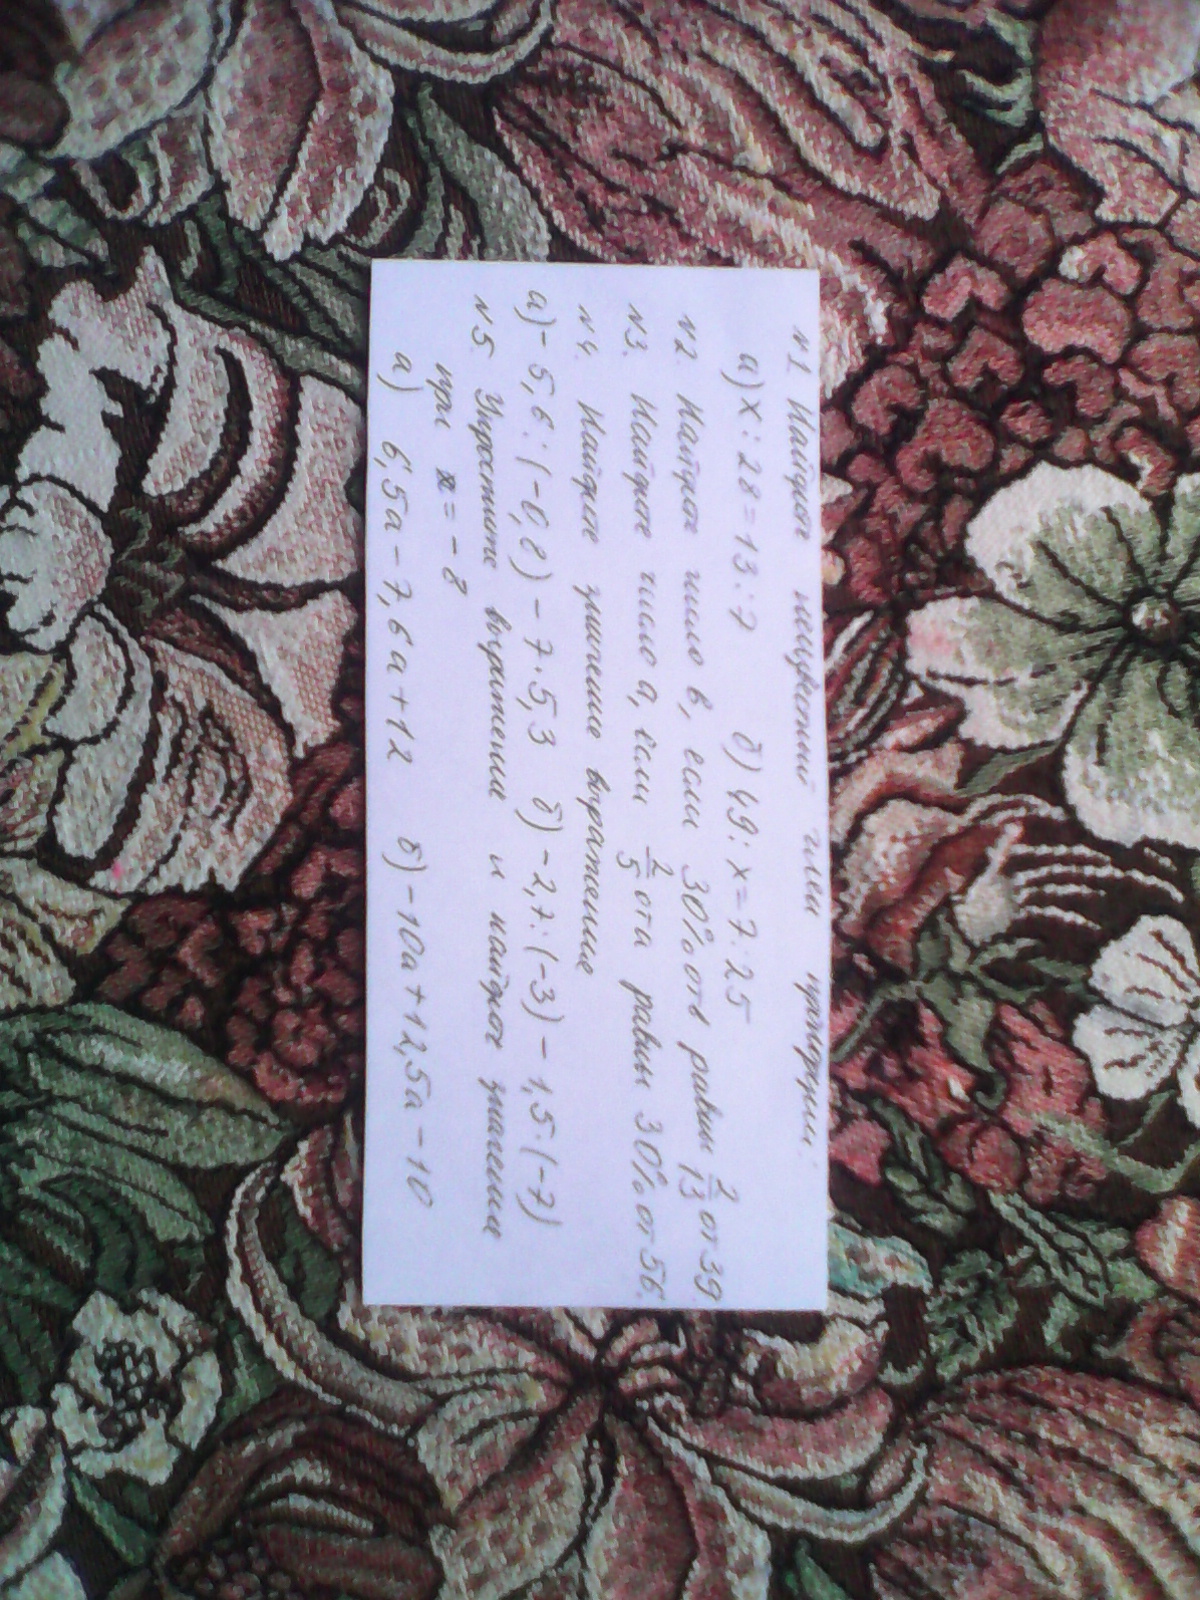 №1 Найдите неизвестный член пропорции:
а) х : 28 = 13 : 7 б) 49 : х = 7 : 25
№2. Найдите число в, если 30% от в равны 2/13 от 39.
№3. Найдите число а, если 2/5 от а равны 30% от 56.
№4. Найдите значение выражение
а) - 5,6 : (-0,8) - 7 · 5,3 б) - 2,7 : (-3) - 1,5 · (-7)
№5 Упростите выражение и найдите значение
при = - 8
а) 6,5а - 7,6а + 12 б) -10а + 12,5а - 10